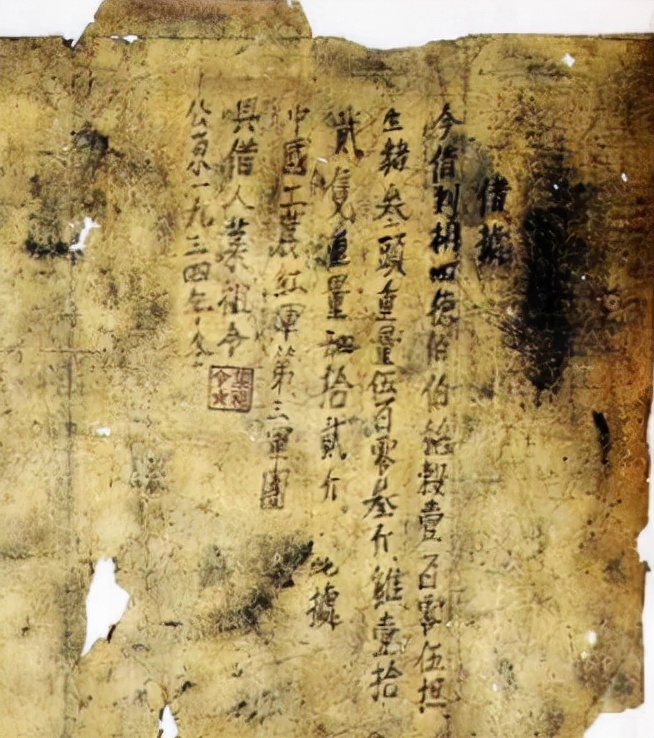 借據
今借到胡四德伯伯稻穀壹百零伍担
生豬叁頭重量伍百零叁斤、雞壹拾
貳隻重量肆拾貳斤。此據
中國工農紅軍第三軍團
具借人葉祖令
葉祖令
公元一九三四年冬